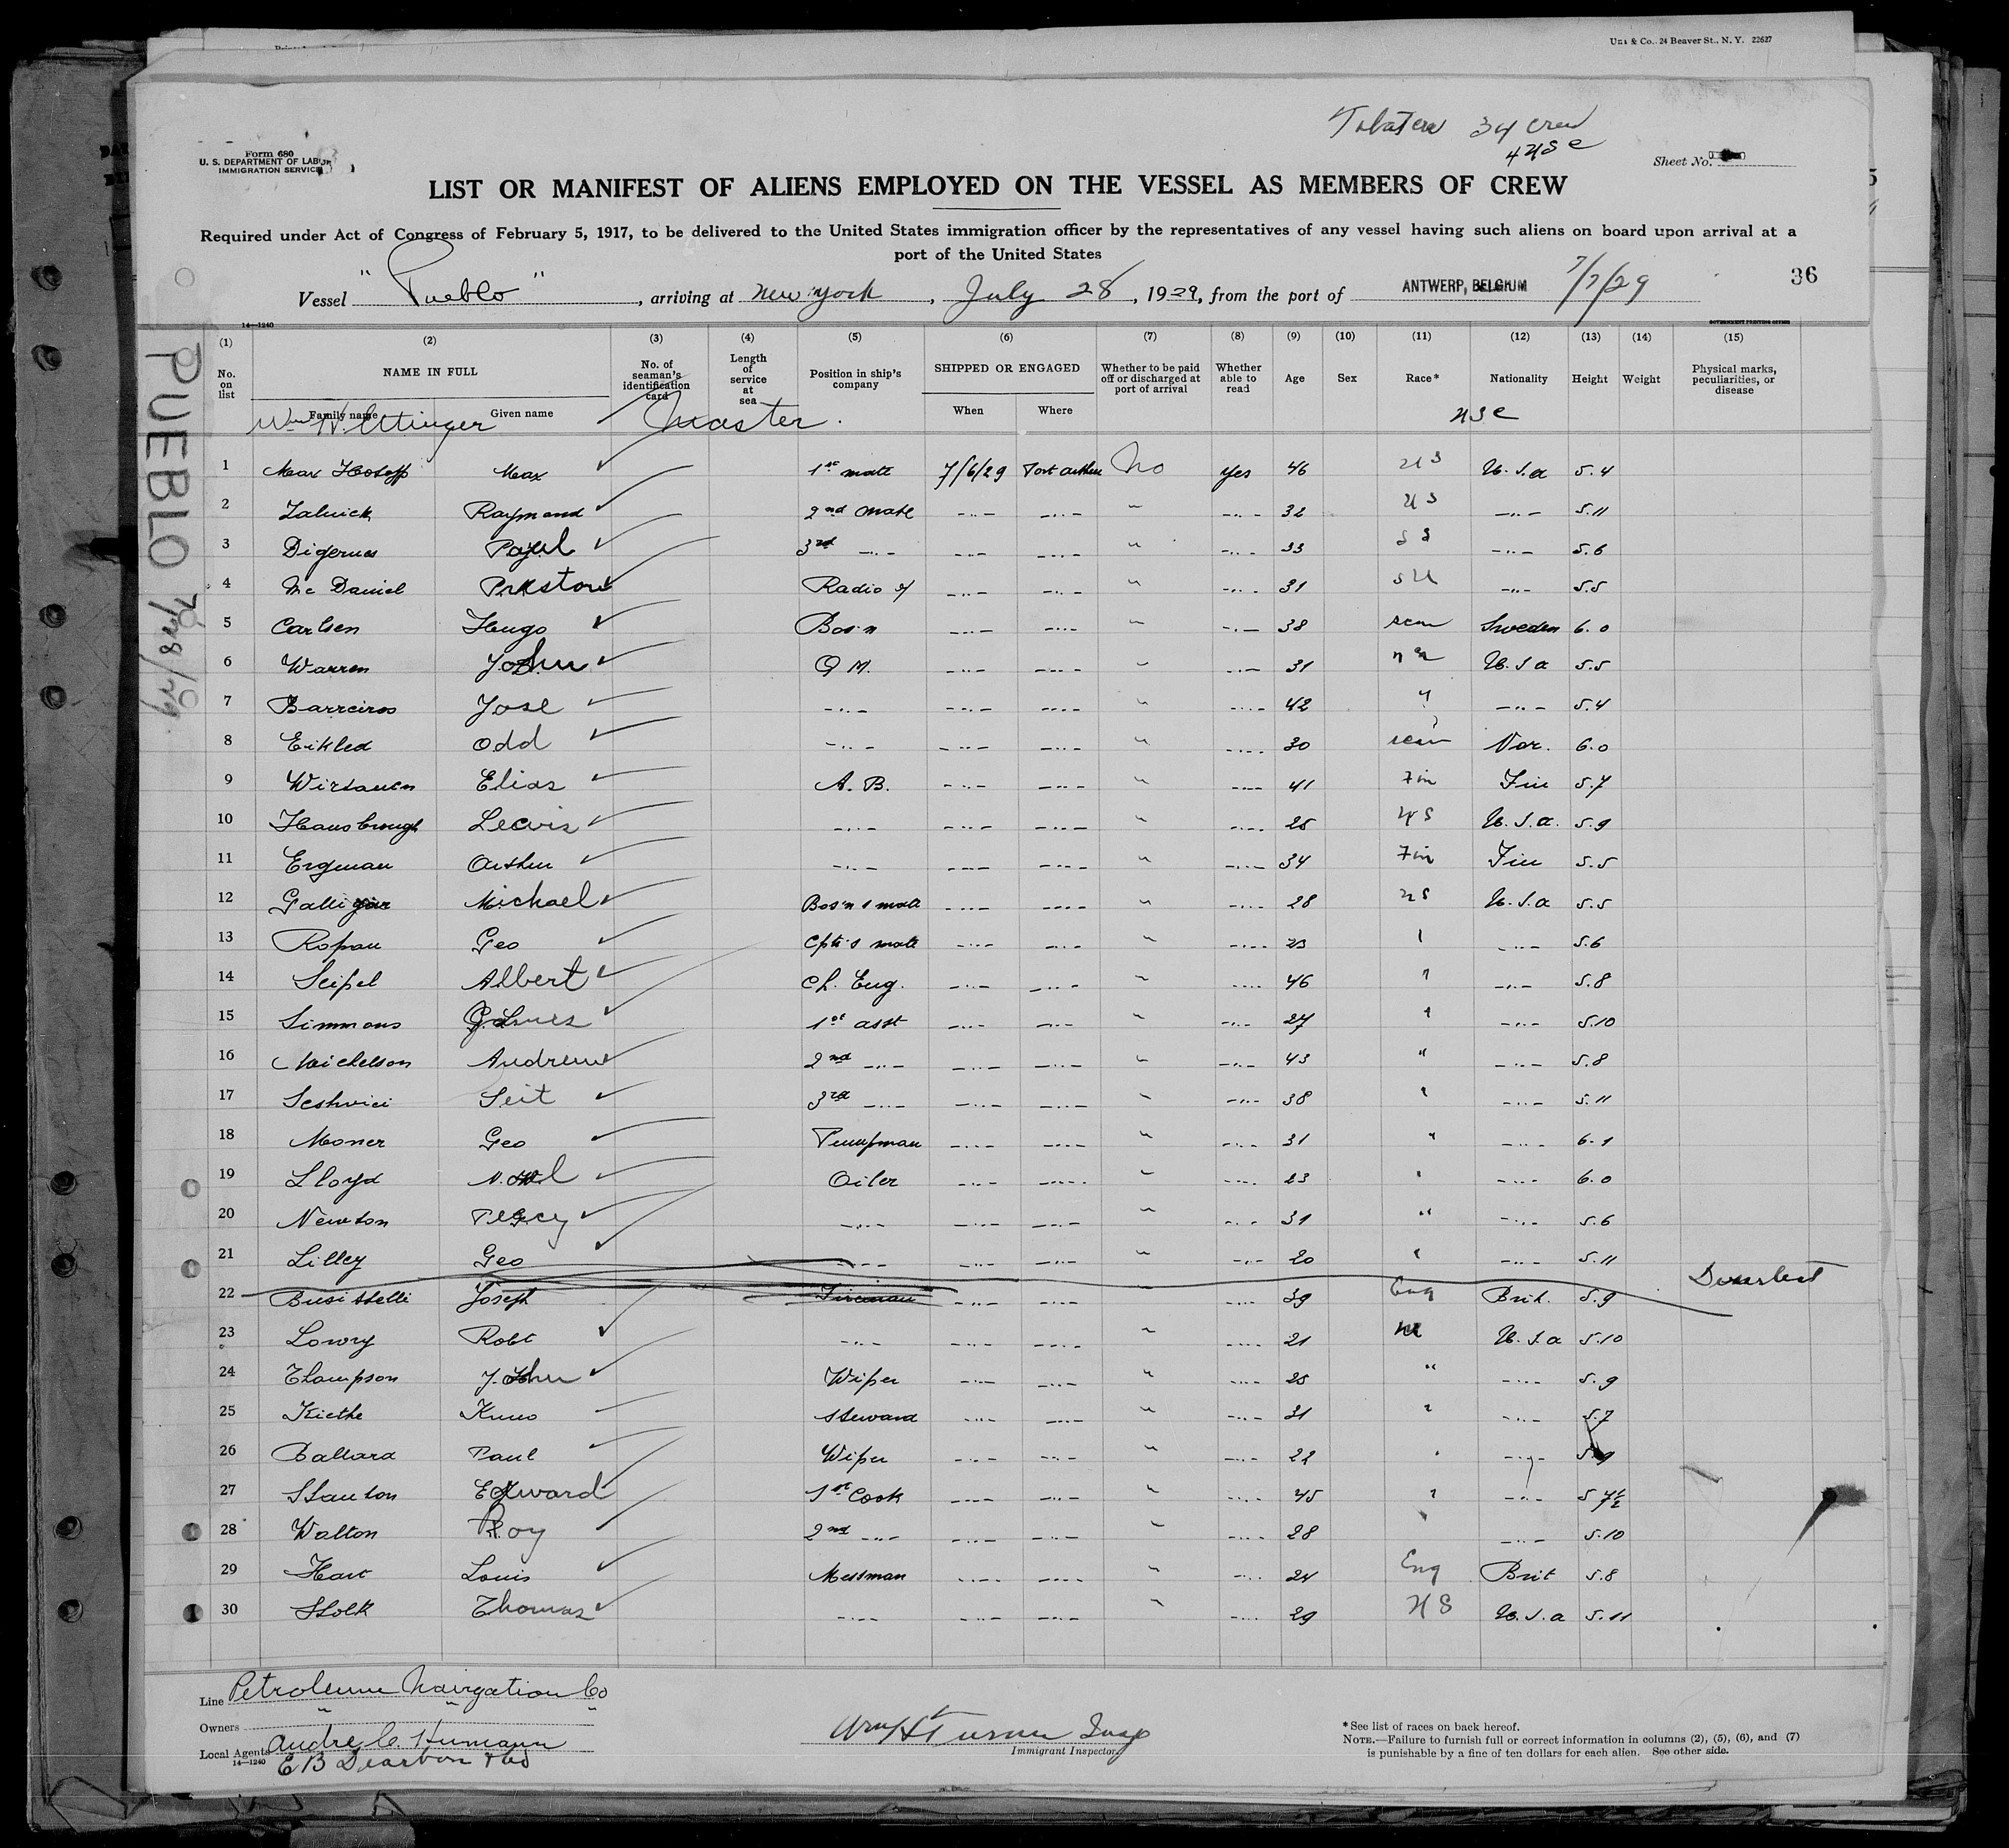 Co., 24 Beaver St., N. Y. 22627
34 crew
4 USC
Form 680
U. S. DEPARTMENT OF LABOR
IMMIGRATION SERVICE
Sheet No.
LIST OR MANIFEST OF ALIENS EMPLOYED ON THE VESSEL AS MEMBERS OF CREW
Required under Act of Congress of February 5, 1917, to be delivered to the United States immigration officer by the representatives of any vessel having such aliens on board upon arrival at a
port of the United States
Vessel "Pueblo", arriving at New York, July 28, 1929, from the port of ANTWERP, BELGIUM 7/7/29
36
14—1240
GOVERNMENT PRINTING OFFICE
(1) (2) (3) (4) (5) (6) (7) (8) (9) (10) (11) (12) (13) (14) (15)
No. on list NAME IN FULL No. of seaman's identification card Length of service at sea Position in ship's company SHIPPED OR ENGAGED Whether to be paid off or discharged at port of arrival Whether able to read Age Sex Race* Nationality Height Weight Physical marks, peculiarities, or disease
Family name Given name When Where
Wm H. Ettinger Master. USC
PUEBLO 7/28/29
1 Max Max 1st mate 7/6/29 Port Arthur No Yes 46 US U.S.A 5.4
2 Raymond 2nd mate —"— —"— " —"— 32 US —"— 5.11
3 Digernes Paul 3rd —"— —"— —"— " —"— 33 —"— 5.6
4 Mc Daniel Preston Radio —"— —"— " —"— 31 —"— 5.5
5 Carlsen Hugo Bos'n —"— —"— " —"— 38 scan Sweden 6.0
6 Warren John Q M. —"— —"— " —"— 31 U.S.A 5.5
7 Barreiros Jose —"— —"— —"— " —"— 42 " —"— 5.4
8 Eikled Odd —"— —"— —"— " —"— 30 scan Nor. 6.0
9 Wirtanen Elias A. B. —"— —"— " —"— 41 Fin Fin 5.7
10 Hansbrough Lewis —"— —"— —"— " —"— 25 US U.S.A. 5.9
11 Ergman Arthur —"— —"— —"— " —"— 34 Fin Fin 5.5
12 Michael Bos'n's mate —"— —"— " —"— 28 US U.S.A 5.5
13 Ropau Geo mate —"— —"— " —"— " —"— 5.6
14 Seipel Albert Ch. Eng. —"— —"— " —"— 46 " —"— 5.8
15 Simmons 1st asst —"— —"— " —"— 27 " —"— 5.10
16 Michelson Andrew 2nd —"— —"— —"— " —"— 43 " —"— 5.8
17 Seit 3rd —"— —"— —"— " —"— 38 " —"— 5.11
18 Moner Geo Pumpman —"— —"— " —"— 31 " —"— 6.1
19 Lloyd Oiler —"— —"— " —"— 23 " —"— 6.0
20 Newton Percy —"— —"— —"— " —"— 31 " —"— 5.6
21 Lilley Geo —"— —"— —"— " —"— 20 " —"— 5.11
22 Busittelli Joseph Fireman —"— —"— " —"— 39 Eng Brit. 5.9
23 Lowry Robt —"— —"— —"— " —"— 21 U.S.A 5.10
24 Thompson John Wiper —"— —"— " —"— 25 " —"— 5.9
25 Kiethe Kuno Steward —"— —"— " —"— 31 " —"— 5.7
26 Ballard Paul Wiper —"— —"— " —"— 22 " —"— 5.9
27 Stanton Edward 1st Cook —"— —"— " —"— 45 " —"— 5 7½
28 Walton Roy 2nd —"— —"— —"— " —"— 28 " —"— 5.10
29 Hart Louis Messman —"— —"— " —"— 24 Eng Brit 5.8
30 Stolk Thomas —"— —"— —"— " —"— 29 US U.S.A 5.11
Line Petroleum Navigation Co
Owners " " "
Local Agents Andre C. Humann
14—1240 E B Dearborn & Co
Wm H Turner Insp
Immigrant Inspector.
*See list of races on back hereof.
NOTE.—Failure to furnish full or correct information in columns (2), (5), (6), and (7)
is punishable by a fine of ten dollars for each alien. See other side.